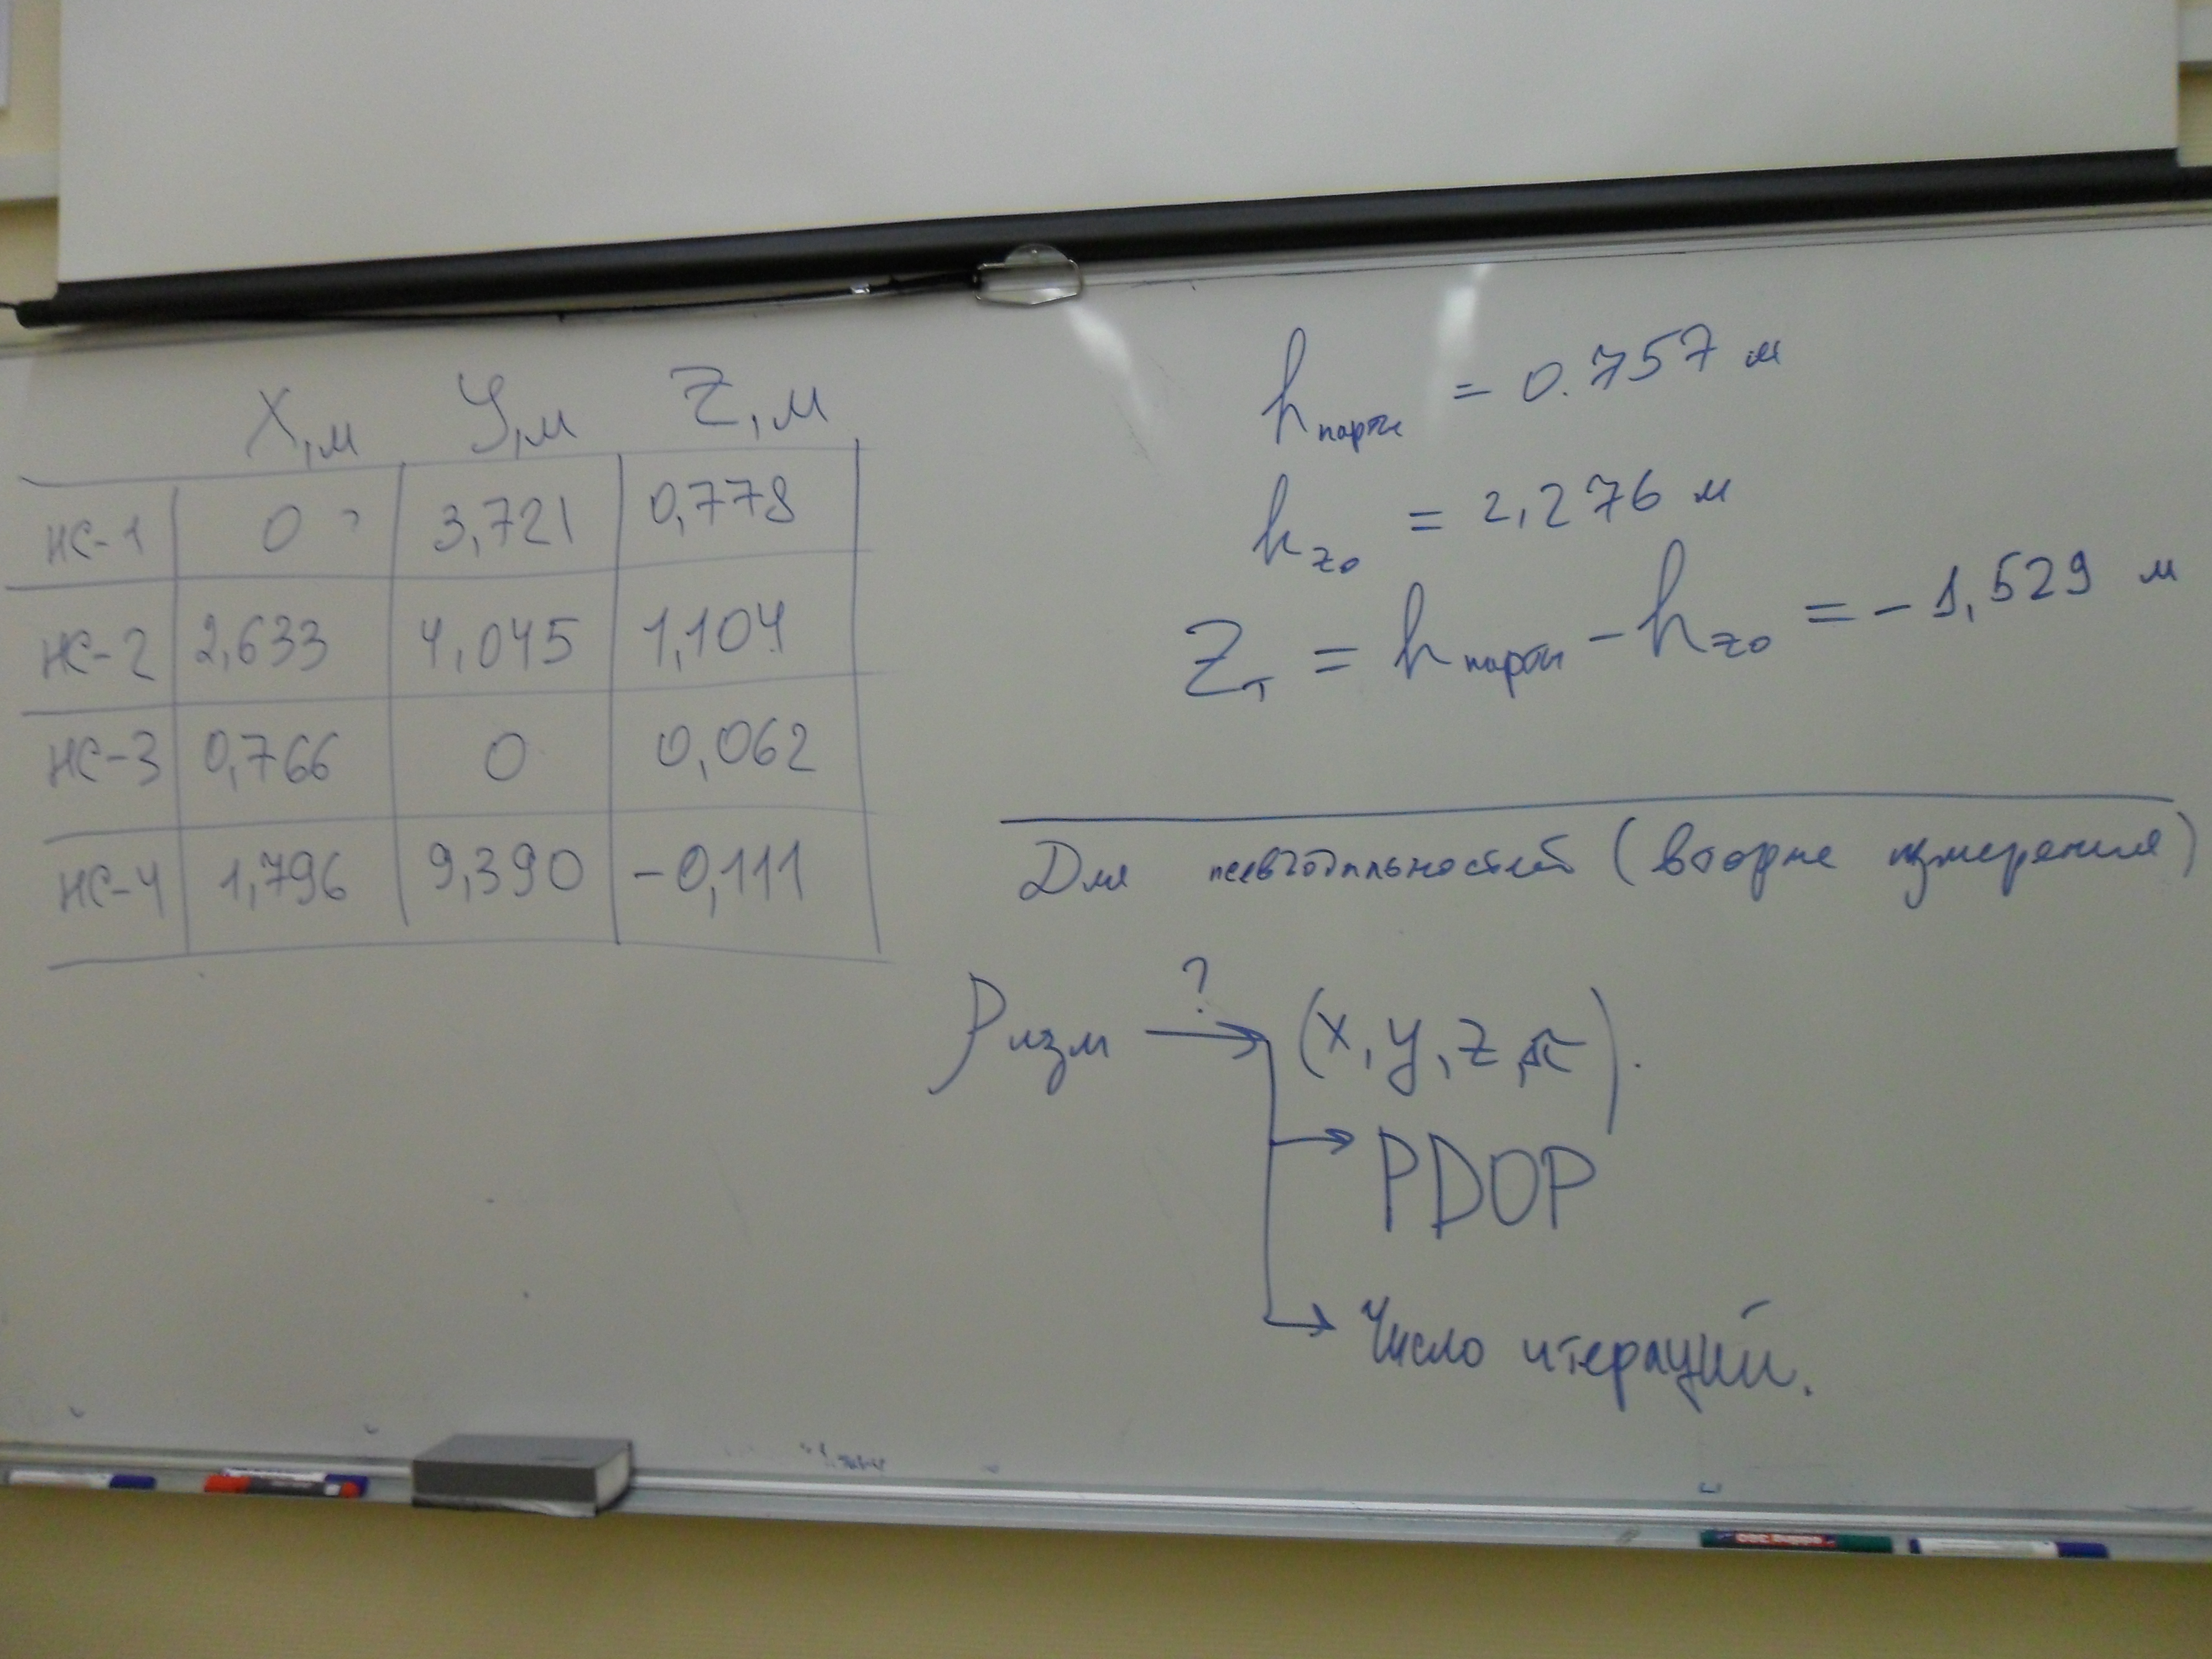 X,м У,м Z,м
НС-1 0 3,721 0,778
НС-2 2,633 4,045 1,104
НС-3 0,766 0 0,062
НС-4 1,796 9,390 -0,111
hпарты = 0.757 м
hz0 = 2,276 м
Zт = hпарты - hz0 = -1,529 м
Для псевдодальностей (вторые измерения)
Ризм ? (x, y, z,
PDOP
Число итераций.